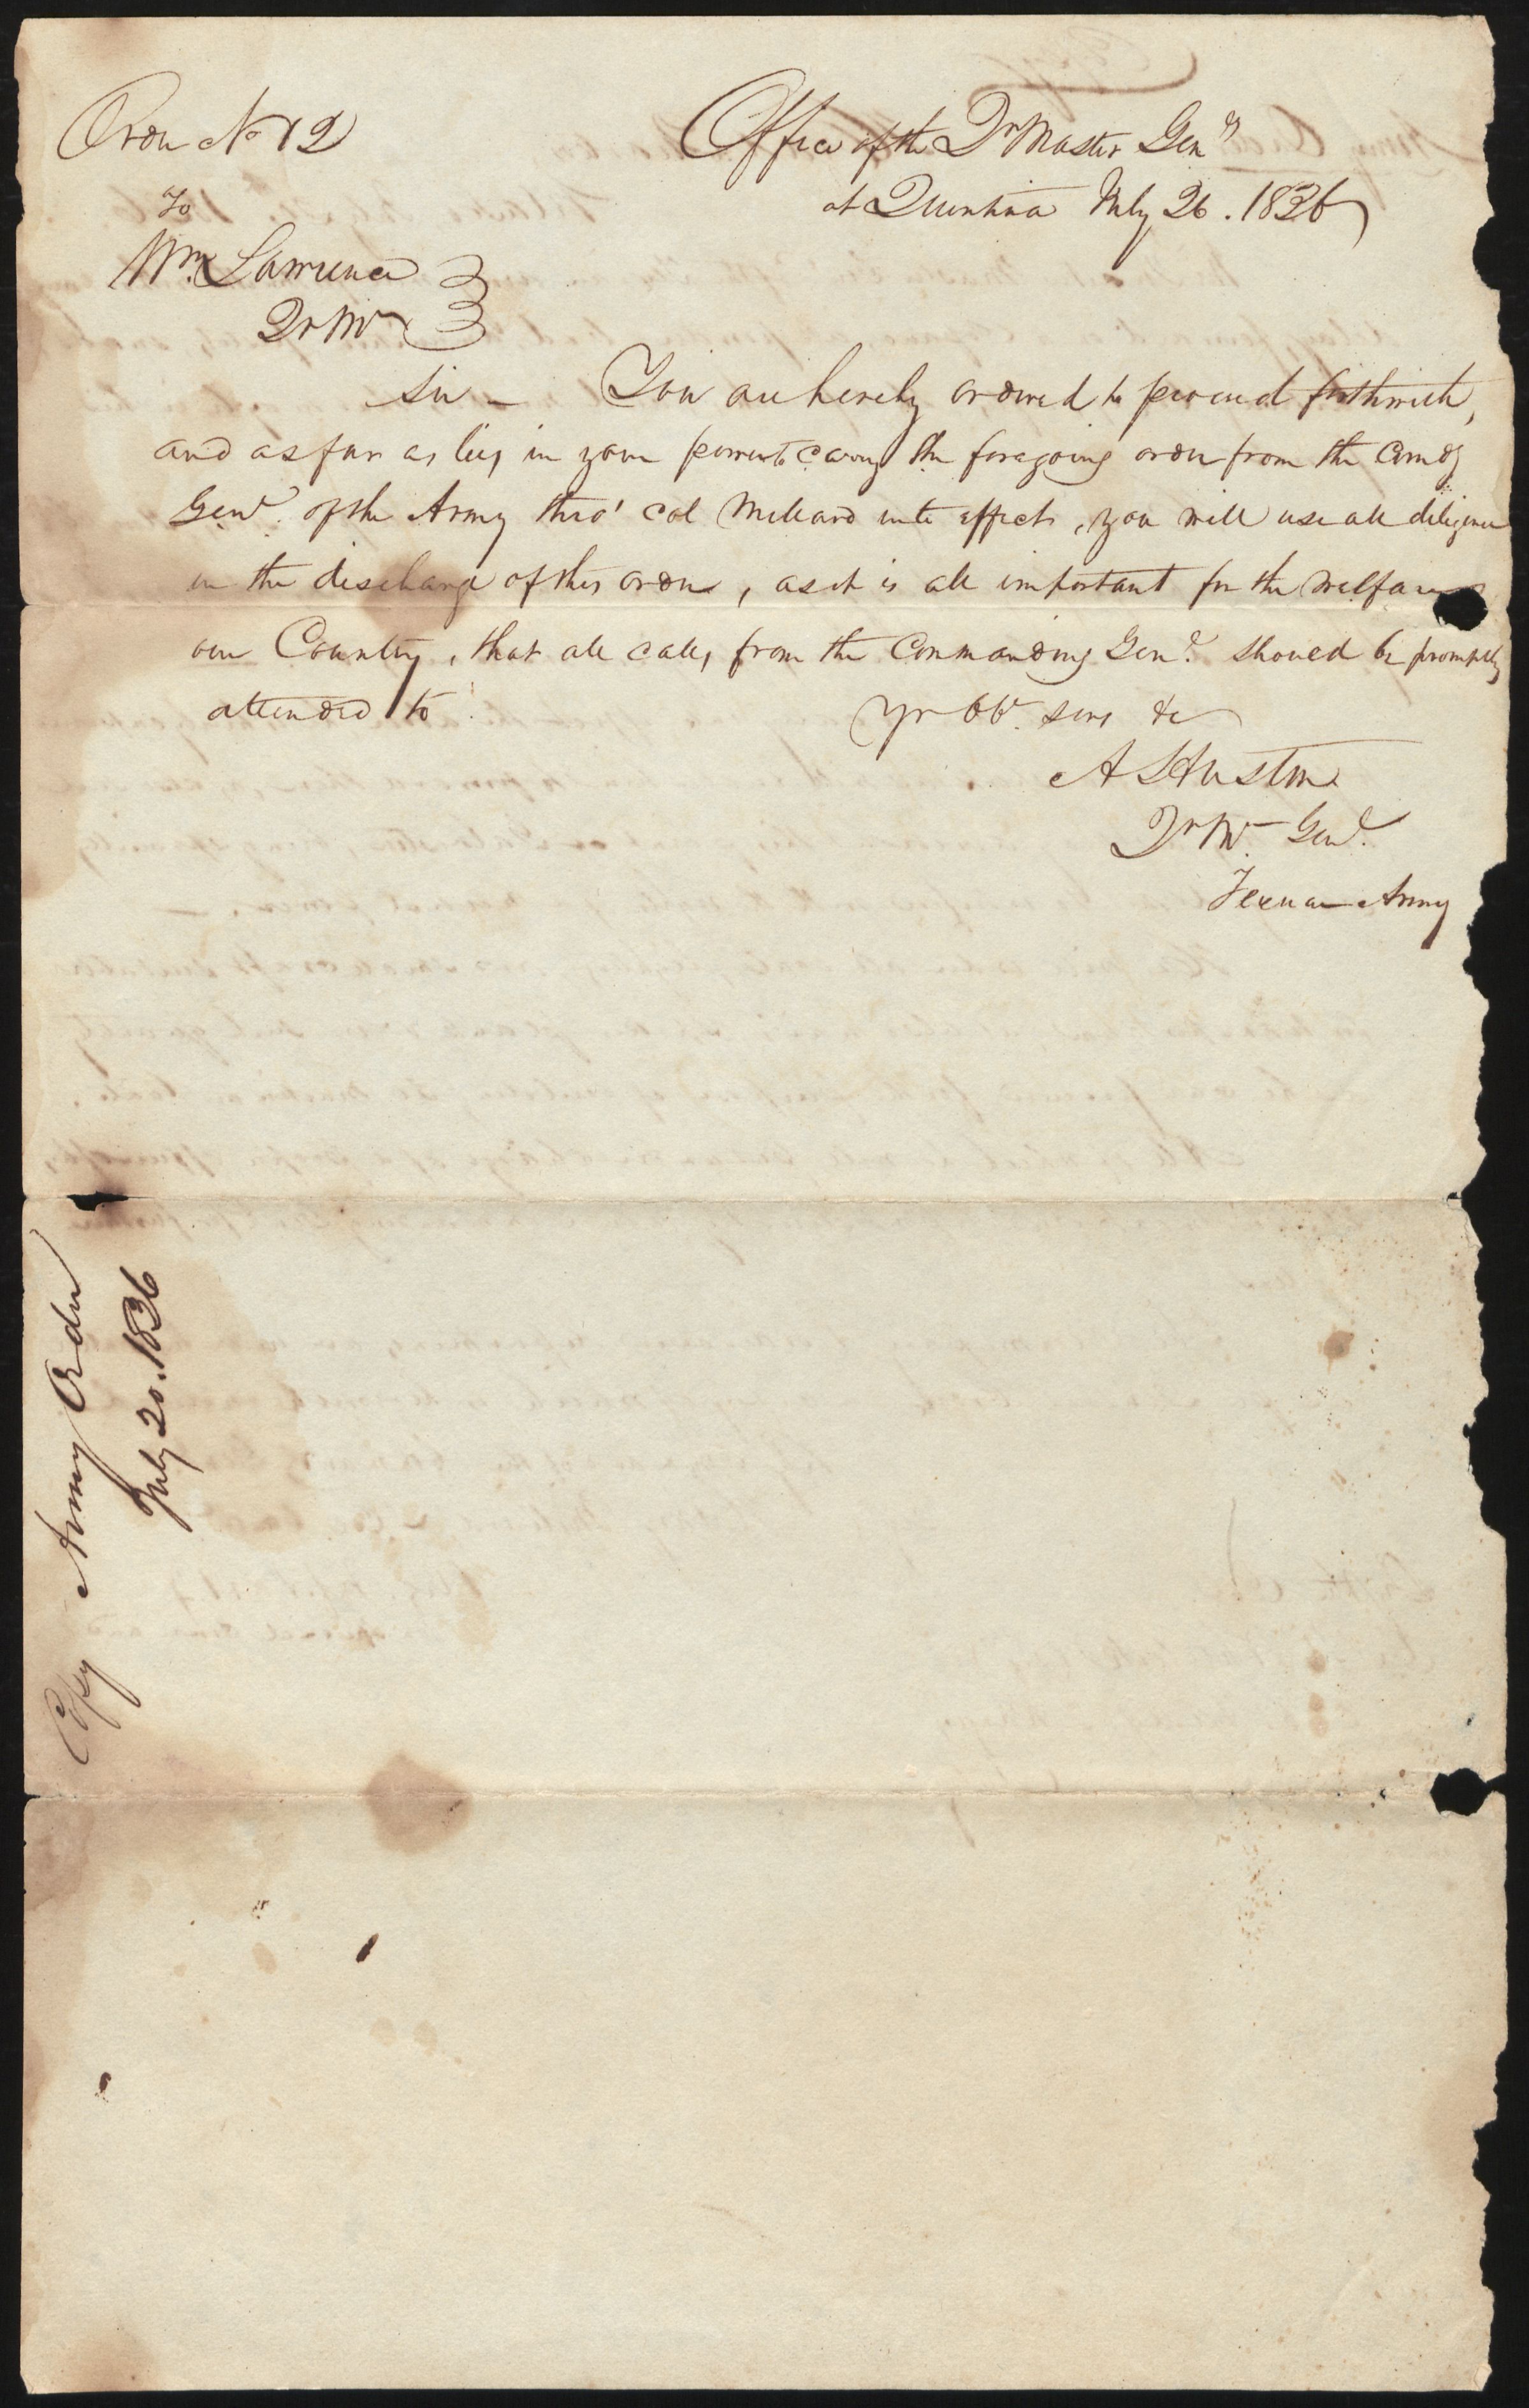 Order No 12
Office of the Qr Master Genl
at Quintana July 26. 1836
To
Wm Lawrence
Qr Mr
Sir - You are hereby ordered to proceed forthwith,
and as far as lies in your power to carry the foregoing order from the Comdg
Genl. of the Army thro' Col Millard into effect, you will use all diligence
in the discharge of this order, as it is all important for the welfare
our Country, that all calls from the Commanding Genl. should be promptly
attended to.
Yr Obt. Servt &c
A Huston
Qr Mr Genl.
Texian Army
Copy Army Order
July 20. 1836